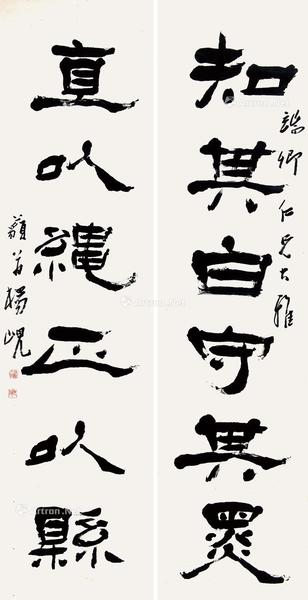 知其白守其黑
端卿仁兄大雅
直以繩正以縣
藐翁楊峴